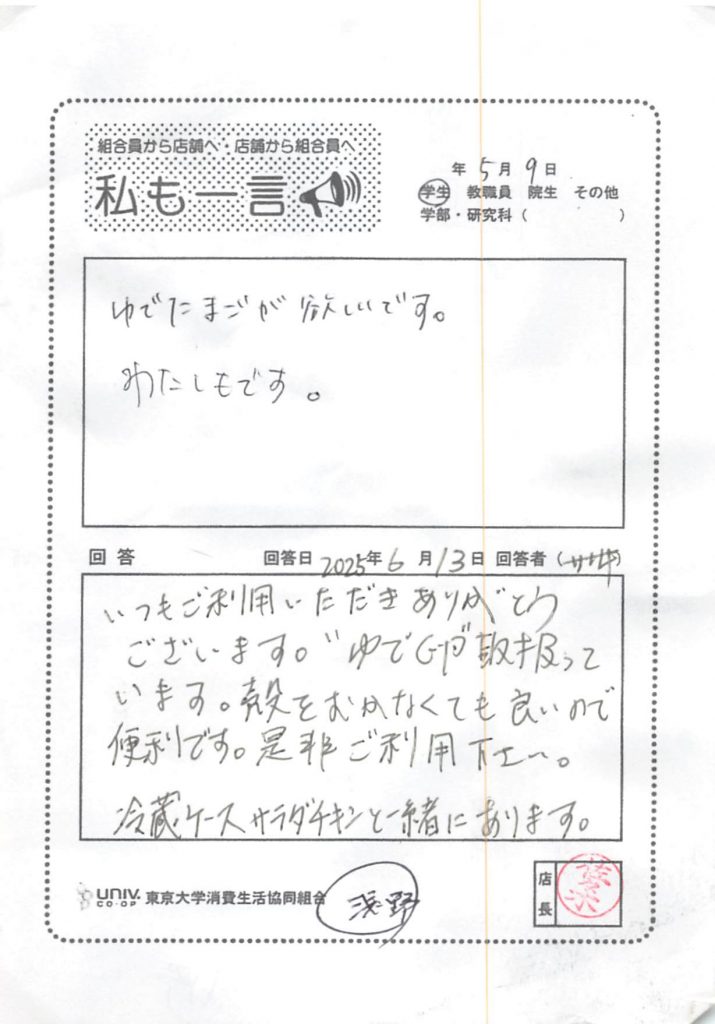 組合員から店舗へ・店舗から組合員へ
私も一言
年 5月 9日
学生 教職員 院生 その他
学部・研究科 ( )
ゆでたまごが欲しいです。
わたしもです。
回答 回答日 2025年 6月13日 回答者 (ササキ)
いつもご利用いただきありがとう
ございます。"ゆで卵"取扱って
います。殻をむかなくても良いので
便利です。是非ご利用下さい。
冷蔵ケースサラダチキンと一緒にあります。
UNIV. CO-OP 東京大学消費生活協同組合
浅野
店長